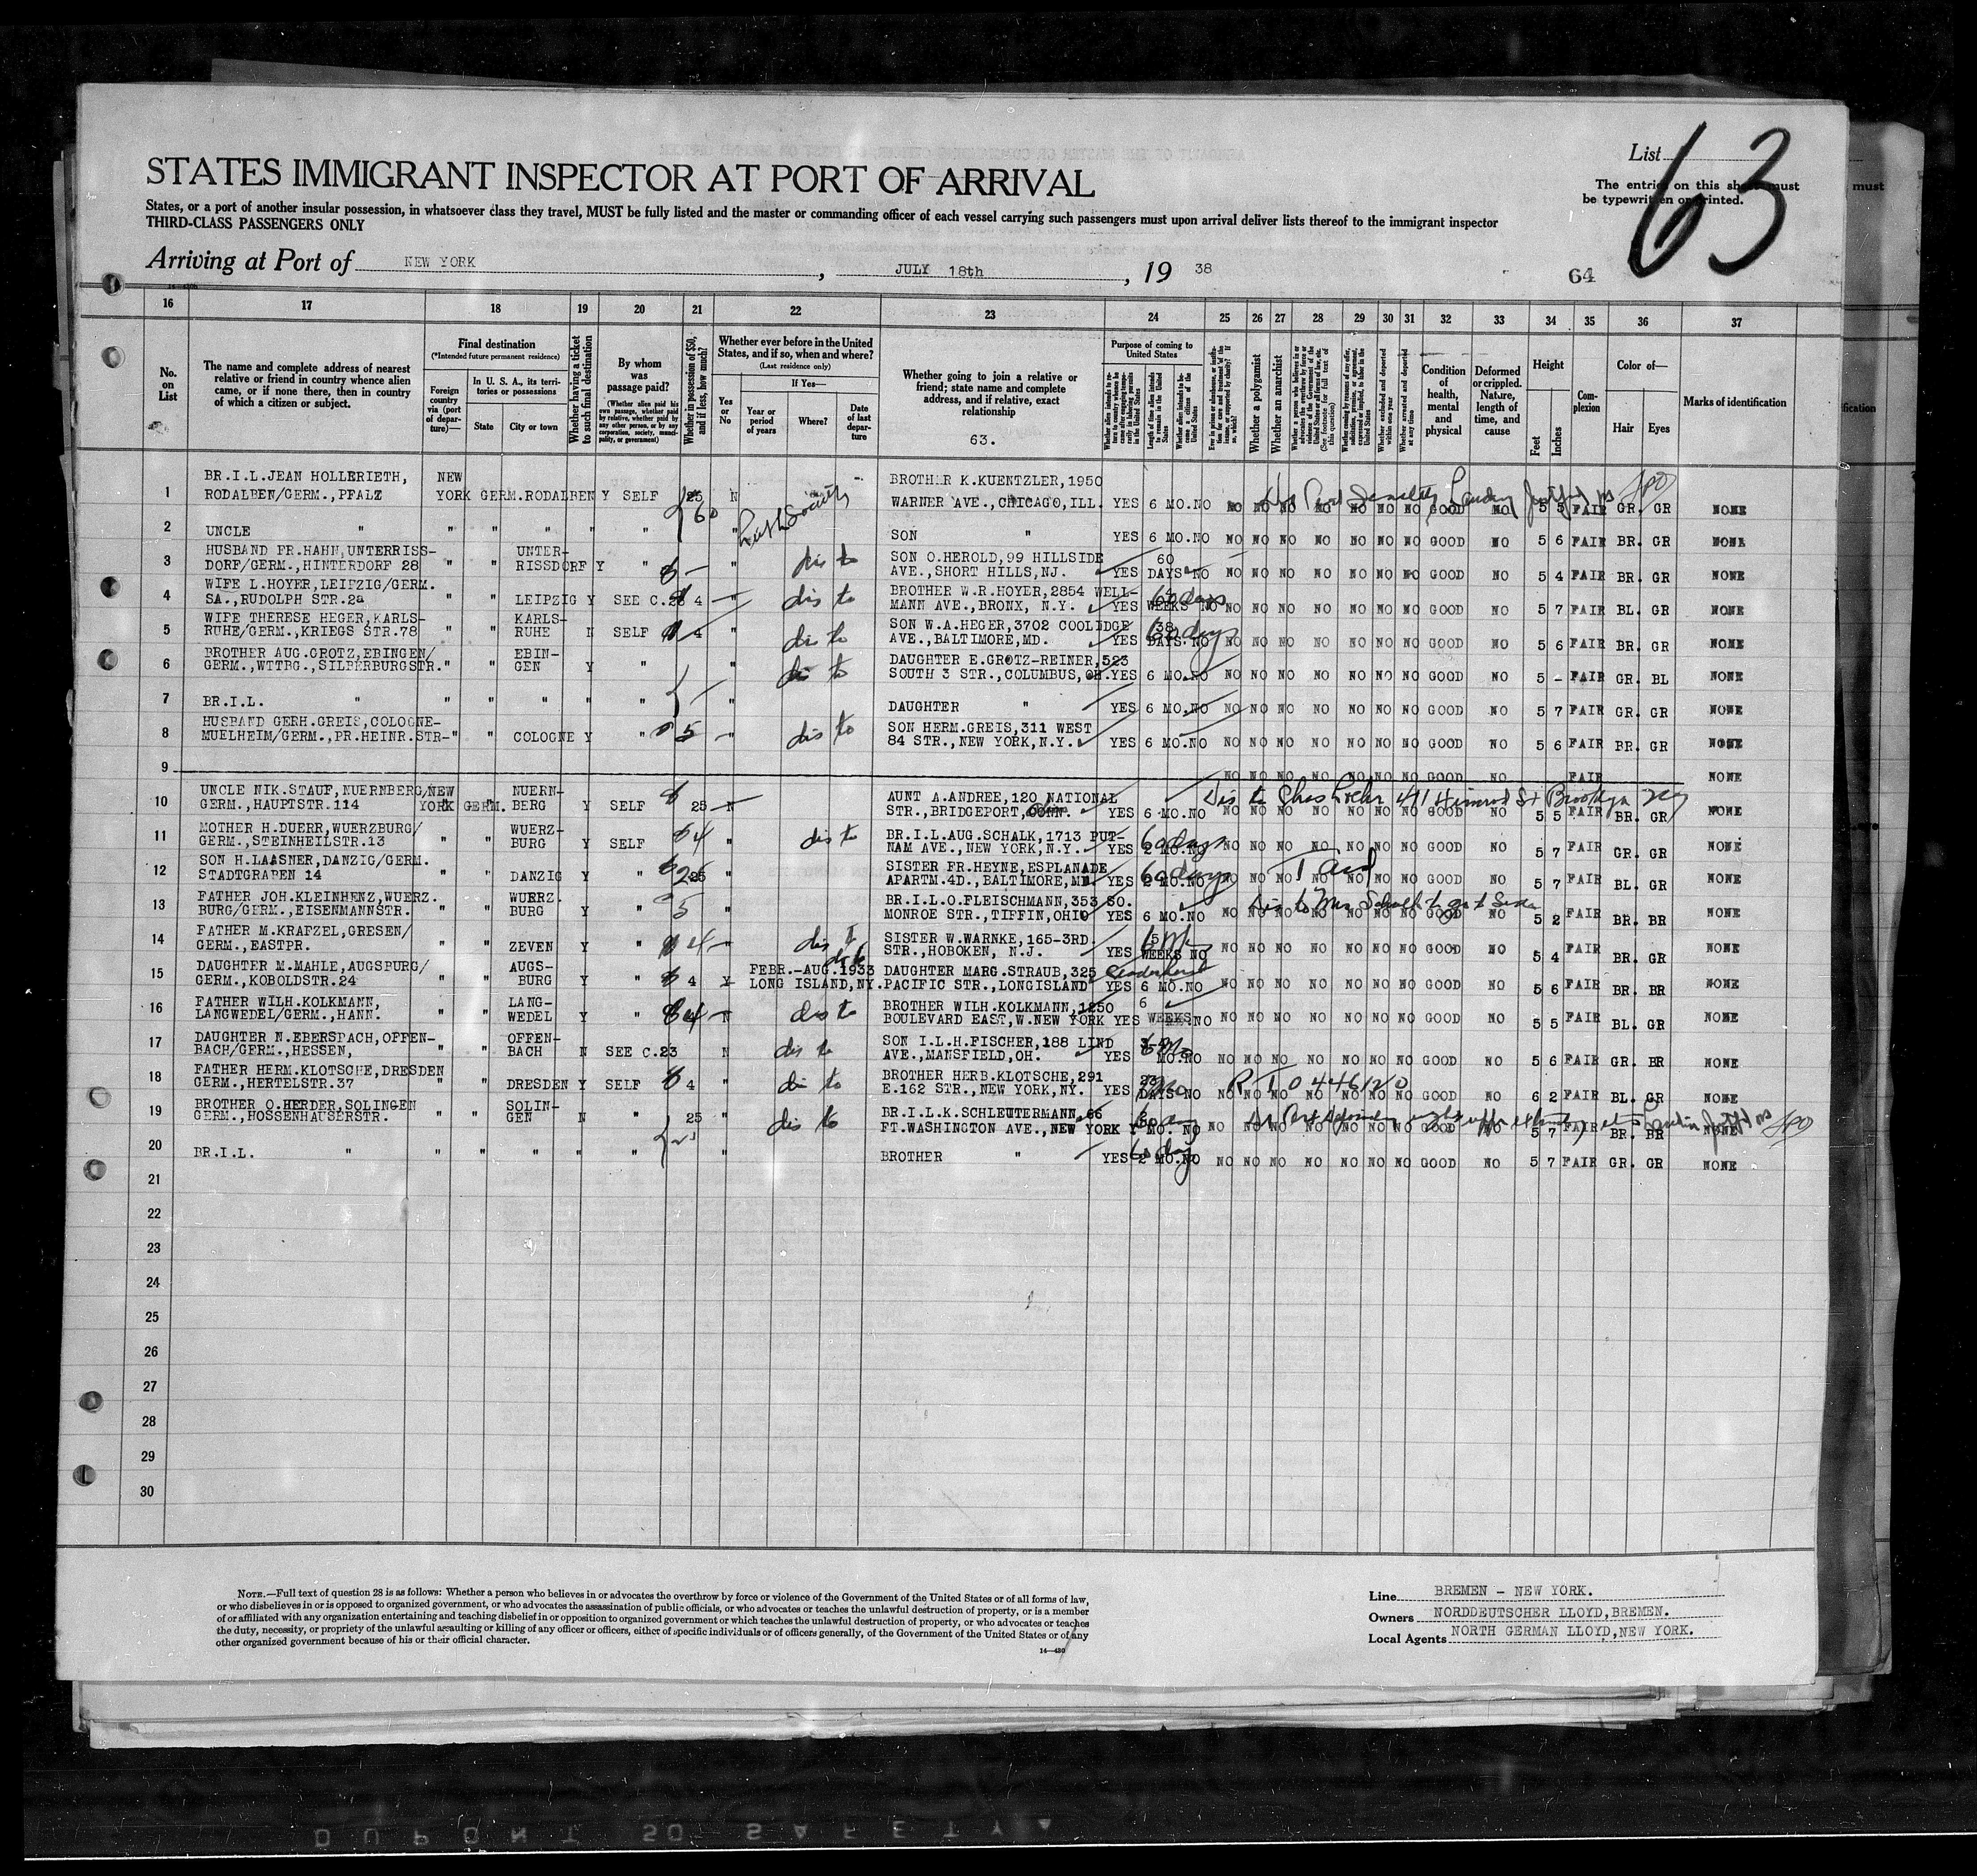 List 63
The entries on this sheet must
be typewritten or printed.
STATES IMMIGRANT INSPECTOR AT PORT OF ARRIVAL
States, or a port of another insular possession, in whatsoever class they travel, MUST be fully listed and the master or commanding officer of each vessel carrying such passengers must upon arrival deliver lists thereof to the immigrant inspector
THIRD-CLASS PASSENGERS ONLY
Arriving at Port of NEW YORK, JULY 18th, 19 38
64
16 17 18 19 20 21 22 23 24 25 26 27 28 29 30 31 32 33 34 35 36 37
No. on List
The name and complete address of nearest relative or friend in country whence alien came, or if none there, then in country of which a citizen or subject.
Final destination
(*Intended future permanent residence)
Foreign country via (port of departure)—
In U. S. A., its territories or possessions
State
City or town
Whether having a ticket to such final destination
By whom was passage paid?
(Whether alien paid his own passage, whether paid by relative, whether paid by any other person, or by any corporation, society, municipality, or government)
Whether in possession of $50, and if less, how much?
Whether ever before in the United States, and if so, when and where?
(Last residence only)
Yes or No
If Yes—
Year or period of years
Where?
Date of last departure
Whether going to join a relative or friend; state name and complete address, and if relative, exact relationship
63.
Purpose of coming to United States
Length of time alien intends to remain in the United States
Whether a polygamist
Whether an anarchist
(See footnote for full text of this question)
Condition of health, mental and physical
Deformed or crippled. Nature, length of time, and cause
Height
Feet
Inches
Complexion
Color of—
Hair
Eyes
Marks of identification
1 BR.I.L.JEAN HOLLERIETH, RODALBEN/GERM.,PFALZ NEW YORK GERM. RODALBEN Y SELF 25 N BROTHER K.KUENTZLER,1950 WARNER AVE.,CHICAGO,ILL. YES 6 MO. NO NO NO NO NO NO NO NO GOOD NO 5 5 FAIR GR. GR NONE
60
2 UNCLE " " " " " " " SON " YES 6 MO. NO NO NO NO NO NO NO NO GOOD NO 5 6 FAIR BR. GR NONE
3 HUSBAND FR.HAHN,UNTERRISSDORF/GERM.,HINTERDORF 28 " " UNTERRISSDORF Y " " dis to SON O.HEROLD,99 HILLSIDE AVE.,SHORT HILLS,NJ. YES 60 DAYS NO NO NO NO NO NO NO NO GOOD NO 5 4 FAIR BR. GR NONE
4 WIFE L.HOYER,LEIPZIG/GERM. SA.,RUDOLPH STR.2a " " LEIPZIG Y SEE C.23 4 " dis to BROTHER W.R.HOYER,2854 WELLMANN AVE.,BRONX, N.Y. YES WEEKS 60 days NO NO NO NO NO NO NO NO GOOD NO 5 7 FAIR BL. GR NONE
5 WIFE THERESE HEGER,KARLSRUHE/GERM.,KRIEGS STR.78 " " KARLSRUHE N SELF 4 " dis to SON W.A.HEGER,3702 COOLIDGE AVE.,BALTIMORE,MD. YES 38 DAYS 60 days NO NO NO NO NO NO NO NO GOOD NO 5 6 FAIR BR. GR NONE
6 BROTHER AUG.GROTZ,EBINGEN/GERM.,WTTBG.,SILBERBURGSTR. " " EBINGEN Y " " dis to DAUGHTER E.GROTZ-REINER,523 SOUTH 3 STR.,COLUMBUS,OH. YES 6 MO. NO NO NO NO NO NO NO NO GOOD NO 5 - FAIR GR. BL NONE
7 BR.I.L. " " " " " " " DAUGHTER " YES 6 MO. NO NO NO NO NO NO NO NO GOOD NO 5 7 FAIR GR. GR NONE
8 HUSBAND GERH.GREIS,COLOGNE-MUELHEIM/GERM.,PR.HEINR.STR- " " COLOGNE Y " 5 " dis to SON HERM.GREIS,311 WEST 84 STR.,NEW YORK,N.Y. YES 6 MO. NO NO NO NO NO NO NO NO GOOD NO 5 6 FAIR BR. GR NONE
9 NO NO NO NO NO NO NO GOOD NO FAIR NONE
10 UNCLE NIK.STAUF,NUERNBERG/GERM.,HAUPTSTR.114 NEW YORK GERM. NUERNBERG Y SELF 25 N AUNT A.ANDREE,120 NATIONAL STR.,BRIDGEPORT,CONN. YES 6 MO. NO NO NO NO NO NO NO NO GOOD NO 5 5 FAIR BR. GR NONE
Dis to Chas 411 Himrod St Brooklyn NY
11 MOTHER H.DUERR,WUERZBURG/GERM.,STEINHEILSTR.13 " " WUERZBURG Y SELF 4 " dis to BR.I.L.AUG.SCHALK,1713 PUTNAM AVE.,NEW YORK,N.Y. YES 2 MO. 60 days NO NO NO NO NO NO NO NO GOOD NO 5 7 FAIR GR. GR NONE
12 SON H.LAASNER,DANZIG/GERM. STADTGRABEN 14 " " DANZIG Y " 25 " SISTER FR.HEYNE,ESPLANADE APARTM.4D.,BALTIMORE,MD. YES 2 MO. 60 days NO NO NO NO NO NO NO NO GOOD NO 5 7 FAIR BL. GR NONE
13 FATHER JOH.KLEINHENZ,WUERZBURG/GERM.,EISENMANNSTR. " " WUERZBURG Y " 5 " BR.I.L.O.FLEISCHMANN,353 SO. MONROE STR.,TIFFIN,OHIO YES 6 MO. NO NO NO NO NO NO NO NO GOOD NO 5 2 FAIR BR. BR NONE
14 FATHER M.KRAFZEL,GRESEN/GERM.,EASTPR. " " ZEVEN Y " 4 " dis to SISTER W.WARNKE,165-3RD. STR.,HOBOKEN, N.J. YES WEEKS NO NO NO NO NO NO NO NO GOOD NO 5 4 FAIR BR. GR NONE
15 DAUGHTER M.MAHLE,AUGSBURG/GERM.,KOBOLDSTR.24 " " AUGSBURG Y " 4 Y FEBR.-AUG.1933 LONG ISLAND,NY. DAUGHTER MARG.STRAUB,325 PACIFIC STR.,LONGISLAND YES 6 MO. NO NO NO NO NO NO NO NO GOOD NO 5 6 FAIR BR. BR NONE
16 FATHER WILH.KOLKMANN, LANGWEDEL/GERM.,HANN. " " LANGWEDEL Y " 4 N dis to BROTHER WILH.KOLKMANN,1250 BOULEVARD EAST,W.NEW YORK YES 6 WEEKS NO NO NO NO NO NO NO NO GOOD NO 5 5 FAIR BL. GR NONE
17 DAUGHTER N.EBERSPACH,OFFENBACH/GERM.,HESSEN, " " OFFENBACH N SEE C.23 N dis to SON I.L.H.FISCHER,188 LIND AVE.,MANSFIELD,OH. YES MO. NO NO NO NO NO NO NO NO GOOD NO 5 6 FAIR GR. BR NONE
18 FATHER HERM.KLOTSCHE,DRESDEN GERM.,HERTELSTR.37 " " DRESDEN Y SELF 4 " dis to BROTHER HERB.KLOTSCHE,291 E.162 STR.,NEW YORK,NY. YES DAYS NO NO NO NO NO NO NO NO GOOD NO 6 2 FAIR BL. GR NONE
19 BROTHER O.HERDER,SOLINGEN GERM.,HOSSENHAUSERSTR. " " SOLINGEN N " 25 " dis to BR.I.L.K.SCHLEUTERMANN,66 FT.WASHINGTON AVE.,NEW YORK Y MO. NO NO NO NO NO NO NO NO GOOD NO 5 7 FAIR BR. BR NONE
20 BR.I.L. " " " " " " " BROTHER " YES 2 MO. 60 days NO NO NO NO NO NO NO NO GOOD NO 5 7 FAIR GR. GR NONE
21
22
23
24
25
26
27
28
29
30
NOTE.—Full text of question 28 is as follows: Whether a person who believes in or advocates the overthrow by force or violence of the Government of the United States or of all forms of law,
or who disbelieves in or is opposed to organized government, or who advocates the assassination of public officials, or who advocates or teaches the unlawful destruction of property, or is a member
of or affiliated with any organization entertaining and teaching disbelief in or opposition to organized government or which teaches the unlawful destruction of property, or who advocates or teaches
the duty, necessity, or propriety of the unlawful assaulting or killing of any officer or officers, either of specific individuals or of officers generally, of the Government of the United States or of any
other organized government because of his or their official character.
14—430
Line BREMEN - NEW YORK.
Owners NORDDEUTSCHER LLOYD,BREMEN.
Local Agents NORTH GERMAN LLOYD,NEW YORK.
DUPONT 50 SAFETY